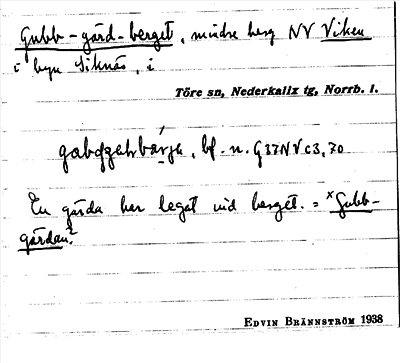 Gubb-gård-berget, mindre berg NV Viken
i byn Siknäs, i
Töre sn, Nederkalix tg, Norrb. l.
bf. n. G37NVc3,70
En gärda har legat vid berget. = ˣGubb-
gärdan?
EDVIN BRÄNNSTRÖM 1938